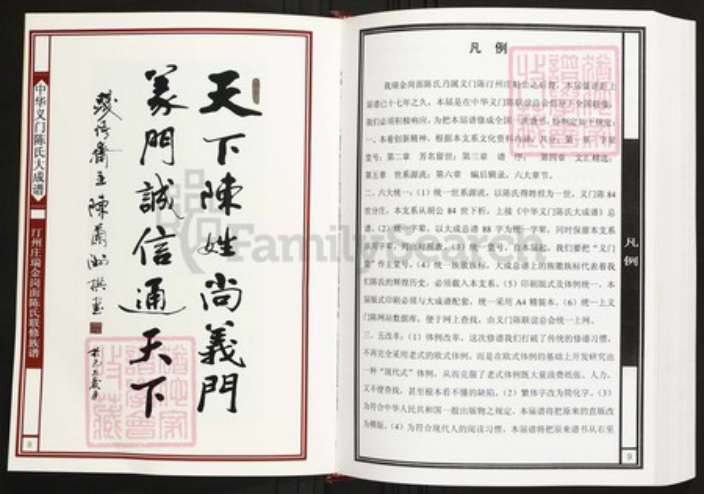 中华义门陈氏大成谱
汀州庄瑞金岗面陈氏联修族谱
8
天下陳姓尚義門
義門誠信通天下
FamilySearch
凡例
我瑞金岗面陈氏乃属义门陈汀州庄
届谱已十七年之久，本届是在中华义门陈联谊总会指导下全国联修，
我们必须积极响应。为把本届谱修成全国一流谱书，特制定如下规定：
一、本着创新精神，根据本支系文化资料内涵，共分：第一章 字辈
堂号；第二章 芳名留世；第三章 谱序；第四章 文汇精选；
第五章 世系源流；第六章 编后辑录。六大章节。
二、六大统一：（1）统一世系源流，以陈氏得姓祖为一世，义门陈84
世分庄，本支系从胡公84世下析，上接《中华义门陈氏大成谱》总
谱。（2）统一字辈，以大成总谱88字为统一字辈，同时保留本支系
所用字辈，列出对照表。（3）统一堂号，自本届起，我们要把“义门
堂”作主堂号。（4）统一族徽族标，大成总谱上的族徽族标代表着我
们陈氏的辉煌历史，必须载入本支系。（5）印刷版式及体例统一，本
届版式印刷必须与大成谱配套，统一采用A4精装本。（6）统一上义
门陈网站数据库，便于网上查找，由义门陈联谊总会统一上网。
三、五改革：（1）体例改革，这次修谱我们打破了传统的修谱习惯，
不再完全采用老式的欧式体例，而是在欧式体例的基础上开发研究出
一种“现代式”体例，从而克服了老式体例既大量浪费纸张、人力，
又不便查找，甚至根本看不懂的缺陷。（2）繁体字改为简化字。（3）
为符合中华人民共和国一般出版物之规定，本届谱将把原来的直版改
为横版。（4）为符合现代人的阅读习惯，本届谱将把原来谱书从右至
凡例
9